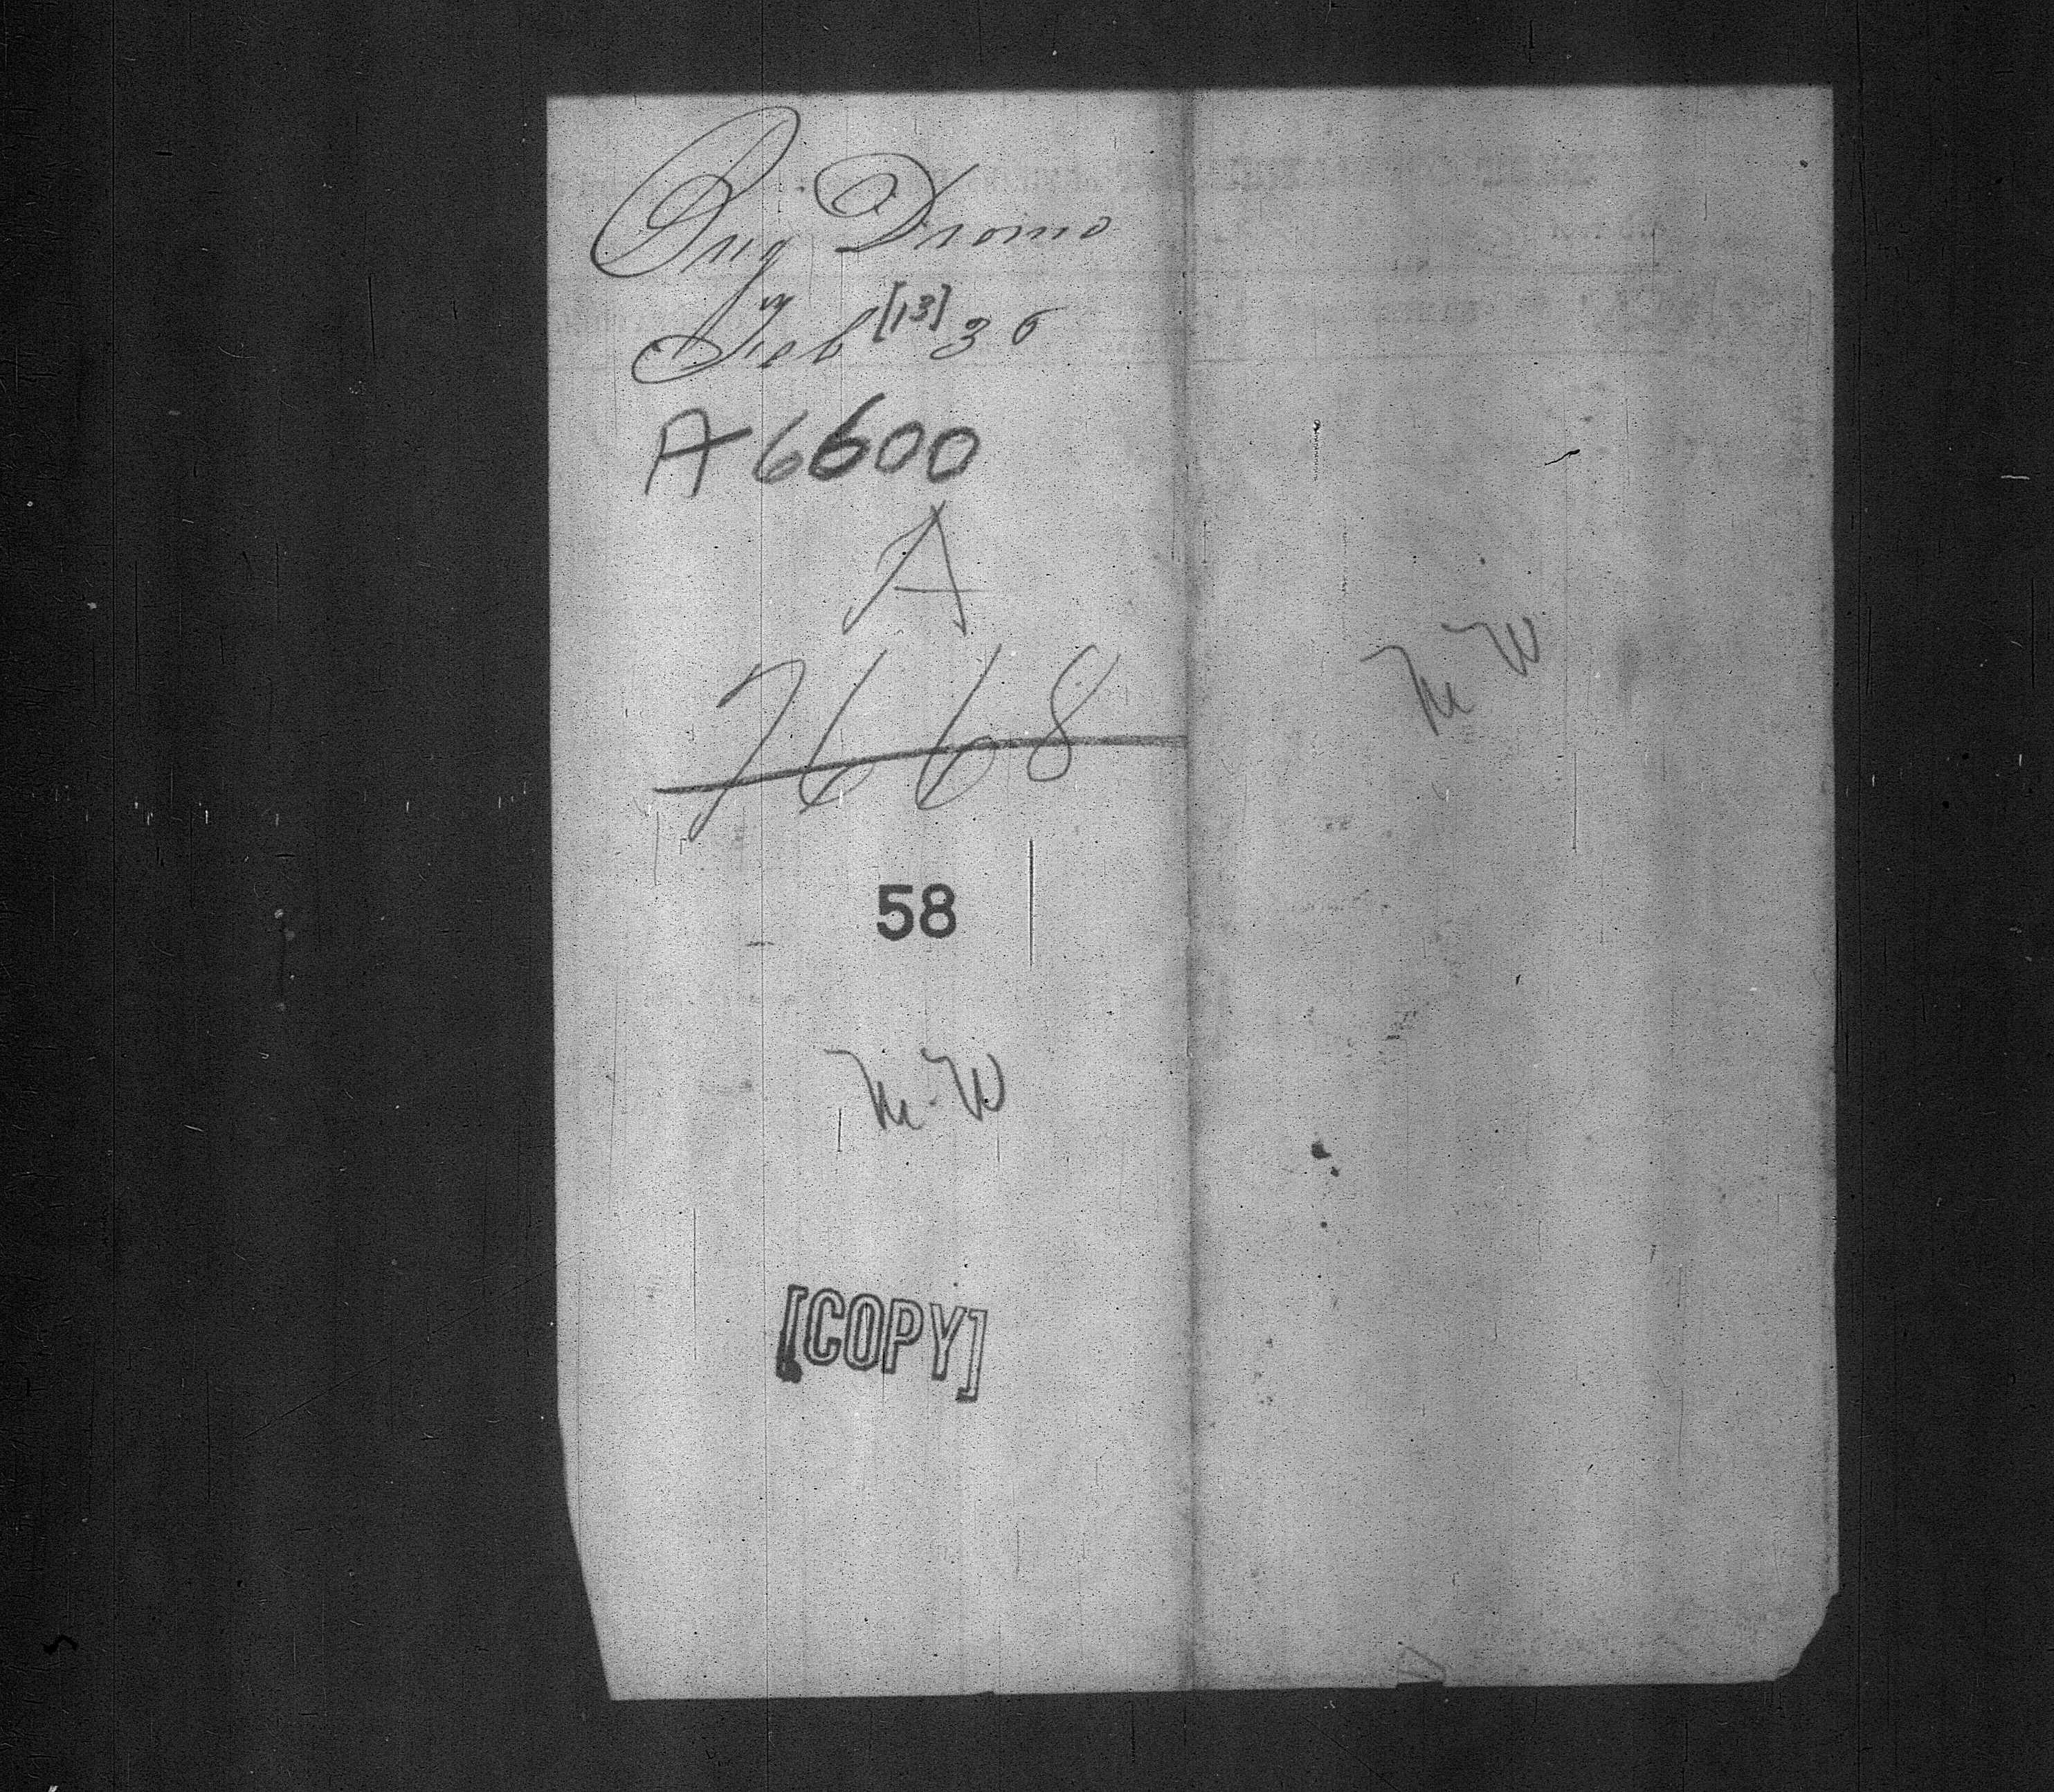 Brig Dromo
Feb [13] 36
A 6600
A
7668
58
M. W
[COPY]
M W